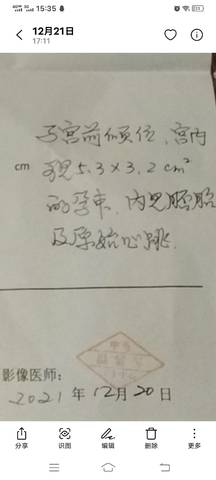 15:35
12月21日
17:11
子宫前倾位,宫内
cm 见5.3×3.2cm²
的孕束,内见胚胎
及原始心跳.
影像医师:
2021年12月20日
分享 识图 编辑 删除 更多